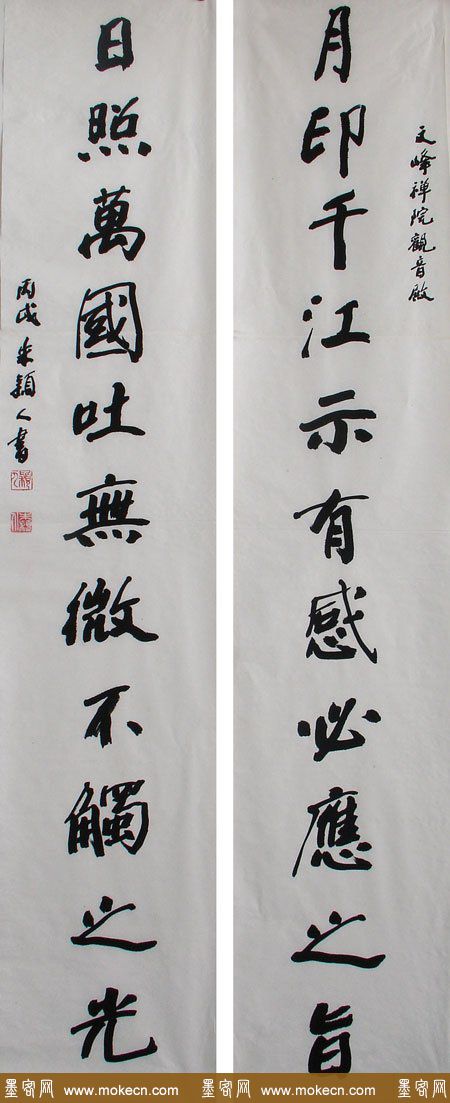 文峰禅院觀音殿
月印千江示有感必應之旨
日照萬國吐無微不觸之光
丙戌朱穎人書
墨客网 www.mokecn.com 墨客网 www.mokecn.com 墨客网